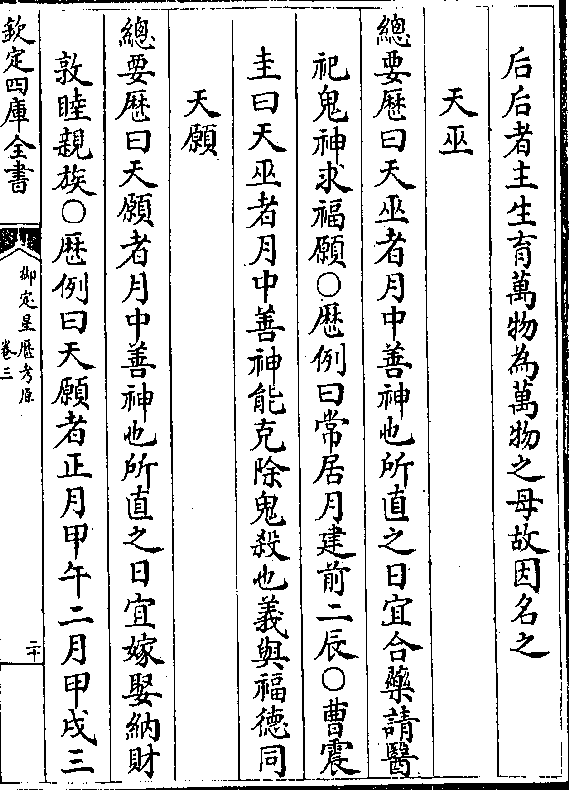 后后者主生育萬物為萬物之母故因名之
天巫
總要厯曰天巫者月中善神也所直之日宜合藥請醫
祀鬼神求福願○厯例曰常居月建前二辰○曹震
圭曰天巫者月中善神能克除鬼殺也義與福德同
天願
總要厯曰天願者月中善神也所直之日宜嫁娶納財
敦睦親族○厯例曰天願者正月甲午二月甲戌三
欽定四庫全書
御定星厯考原
卷三
二十